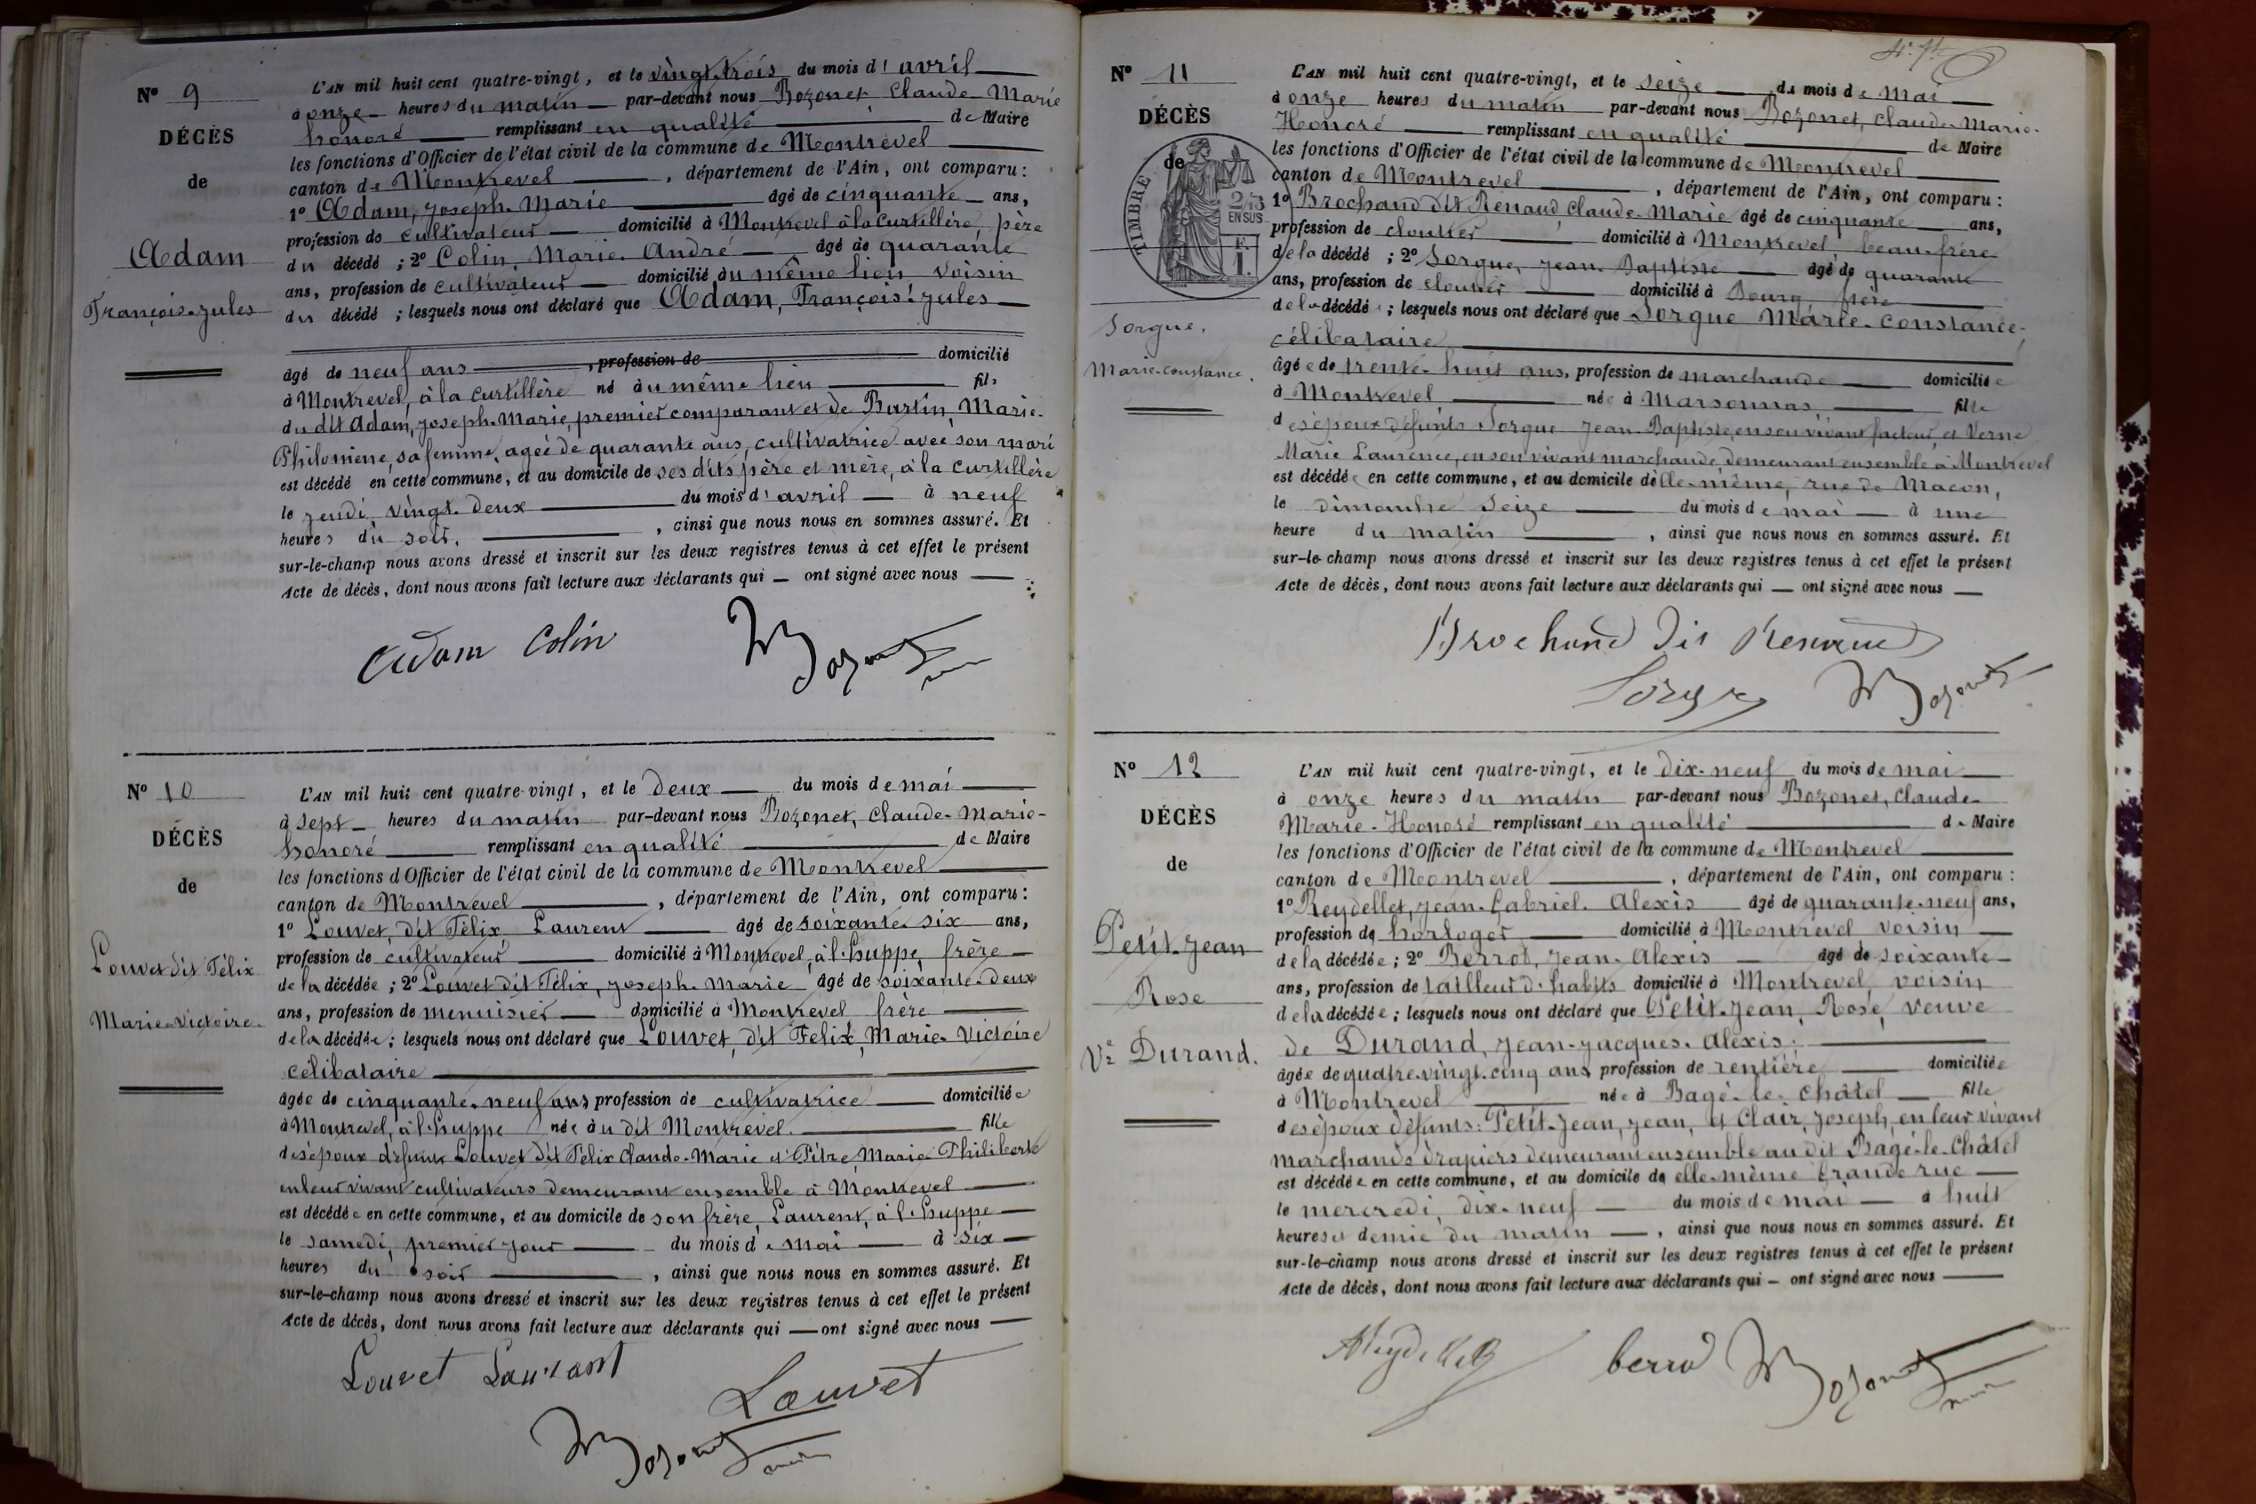 N° 9
DÉCÈS
de
Adam
François-Jules
L'AN mil huit cent quatre-vingt, et le vingt-trois du mois d'avril
à onze heures du matin par-devant nous Bozonet, Claude Marie
honoré remplissant en qualité de Maire
les fonctions d'Officier de l'état civil de la commune de Montrevel
canton de Montrevel, département de l'Ain, ont comparu :
1° Adam, Joseph-Marie âgé de cinquante ans,
profession de cultivateur domicilié à Montrevel à la Curtillère, père
du décédé ; 2° Colin, Marie-André âgé de quarante
ans, profession de cultivateur domicilié au même lieu voisin
du décédé ; lesquels nous ont déclaré que Adam, François-Jules
âgé de neuf ans, profession de domicilié
à Montrevel, à la Curtillère né au même lieu fils
du dit Adam, Joseph-Marie, premier comparant et de Burtin, Marie-
Philomène, sa femme, agée de quarante ans, cultivatrice avec son mari
est décédé en cette commune, et au domicile de ses dits père et mère, à la Curtillère
le jeudi vingt-deux du mois d'avril à neuf
heures du soir, ainsi que nous nous en sommes assuré. Et
sur-le-champ nous avons dressé et inscrit sur les deux registres tenus à cet effet le présent
Acte de décès, dont nous avons fait lecture aux déclarants qui — ont signé avec nous
Adam Colin Bozonet
N° 10
DÉCÈS
de
Louvet dit Félix
Marie-Victoire
L'AN mil huit cent quatre-vingt, et le deux du mois de mai
à sept heures du matin par-devant nous Bozonet, Claude-Marie-
honoré remplissant en qualité de Maire
les fonctions d'Officier de l'état civil de la commune de Montrevel
canton de Montrevel, département de l'Ain, ont comparu :
1° Louvet, dit Félix Laurent âgé de soixante-six ans,
profession de cultivateur domicilié à Montrevel, à l'huppe, frère
de la décédée ; 2° Louvet dit Félix, Joseph-Marie âgé de soixante-deux
ans, profession de menuisier domicilié à Montrevel frère
de la décédée ; lesquels nous ont déclaré que Louvet, dit Félix, Marie-Victoire
célibataire
âgée de cinquante-neuf ans profession de cultivatrice domiciliée
à Montrevel, à l'huppe née au dit Montrevel fille
des époux défunts Louvet dit Félix Claude-Marie et Pitre, Marie-Philiberte
en leur vivant cultivateurs demeurant ensemble à Montrevel
est décédée en cette commune, et au domicile de son frère, Laurent, à l'huppe
le samedi, premier jour du mois de mai à six
heures du soir, ainsi que nous nous en sommes assuré. Et
sur-le-champ nous avons dressé et inscrit sur les deux registres tenus à cet effet le présent
Acte de décès, dont nous avons fait lecture aux déclarants qui — ont signé avec nous
Louvet Laurant
Louvet
Bozonet
N° 11
DÉCÈS
de
TIMBRE
25
EN SUS
Sorgue,
Marie-Constance.
L'AN mil huit cent quatre-vingt, et le seize du mois de mai
à onze heures du matin par-devant nous Bozonet, Claude-Marie-
Honoré remplissant en qualité de Maire
les fonctions d'Officier de l'état civil de la commune de Montrevel
canton de Montrevel, département de l'Ain, ont comparu :
1° Brochand dit Renaud Claude-Marie âgé de cinquante ans,
profession de cloutier domicilié à Montrevel, beau-frère
de la décédé ; 2° Sorgue, Jean-Baptiste âgé de quarante
ans, profession de cloutier domicilié à Bourg, frère
de la décédé ; lesquels nous ont déclaré que Sorgue Marie-Constance,
célibataire
âgée de trente-huit ans, profession de marchande domiciliée
à Montrevel née à Marsonnas, fille
des époux défunts Sorgue Jean-Baptiste, en son vivant facteur, et Verne
Marie Laurence, en son vivant marchande, demeurant ensemble à Montrevel
est décédée en cette commune, et au domicile d'elle-même, rue de Macon,
le dimanche seize du mois de mai à une
heure du matin, ainsi que nous nous en sommes assuré. Et
sur-le-champ nous avons dressé et inscrit sur les deux registres tenus à cet effet le présent
Acte de décès, dont nous avons fait lecture aux déclarants qui — ont signé avec nous
Brochand dit Renaud
Sorgue Bozonet
N° 12
DÉCÈS
de
Petit-Jean
Rose
Ve Durand.
L'AN mil huit cent quatre-vingt, et le dix-neuf du mois de mai
à onze heures du matin par-devant nous Bozonet, Claude-
Marie-Honoré remplissant en qualité de Maire
les fonctions d'Officier de l'état civil de la commune de Montrevel
canton de Montrevel, département de l'Ain, ont comparu :
1° Reydellet, Jean-Gabriel-Alexis âgé de quarante-neuf ans,
profession de horloger domicilié à Montrevel voisin
de la décédée ; 2° Berrod, Jean-Alexis âgé de soixante
ans, profession de tailleur d'habits domicilié à Montrevel voisin
de la décédée ; lesquels nous ont déclaré que Petit-Jean, Rose, veuve
de Durand, Jean-Jacques-Alexis
âgée de quatre-vingt-cinq ans profession de rentière domiciliée
à Montrevel née à Bagé-le-Châtel fille
des époux défunts : Petit-Jean, Jean, et Clair, Joseph, en leur vivant
marchands drapiers demeurant ensemble au dit Bagé-le-Châtel
est décédée en cette commune, et au domicile de elle-même Grande rue
le mercredi, dix-neuf du mois de mai à huit
heures et demie du matin, ainsi que nous nous en sommes assuré. Et
sur-le-champ nous avons dressé et inscrit sur les deux registres tenus à cet effet le présent
Acte de décès, dont nous avons fait lecture aux déclarants qui — ont signé avec nous
Reydellet berrod Bozonet